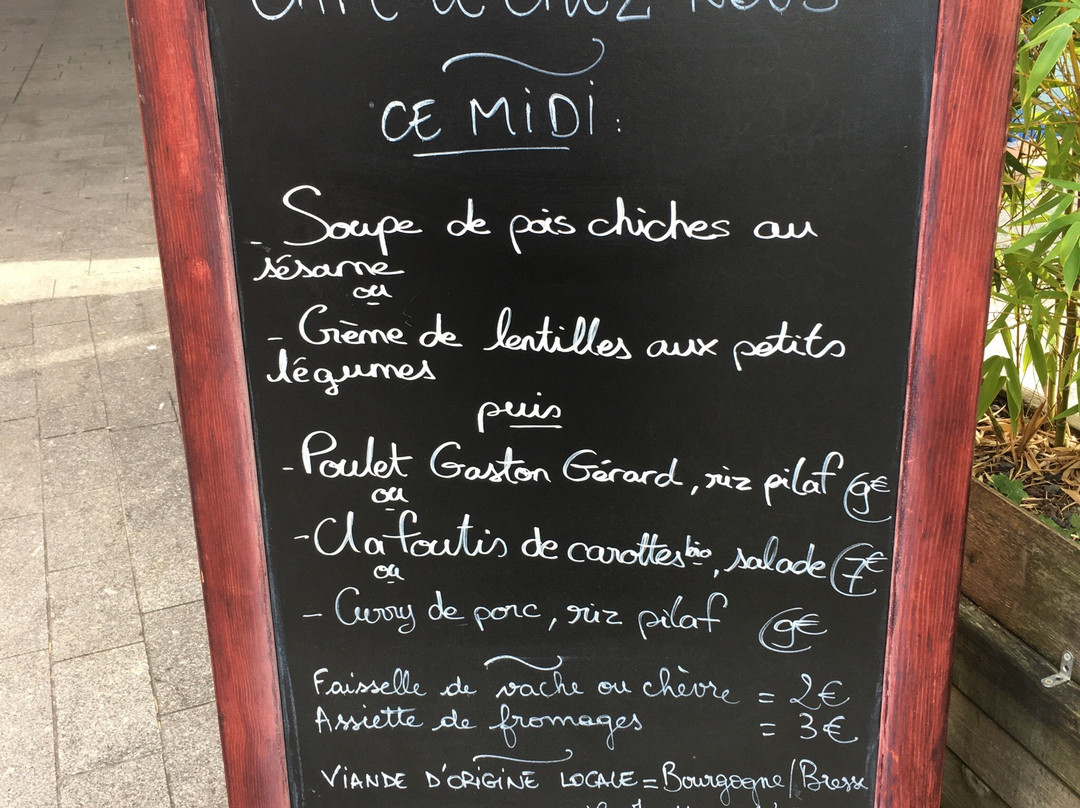 CHEZ NOUS
CE MIDI :
- Soupe de pois chiches au
sésame
ou
- Crème de lentilles aux petits
légumes
puis
- Poulet Gaston Gérard, riz pilaf 9€
ou
- Clafoutis de carottes bio, salade 7€
ou
- Curry de porc, riz pilaf 9€
Faisselle de vache ou chèvre = 2€
Assiette de fromages = 3€
VIANDE D'ORIGINE LOCALE = Bourgogne/Bresse